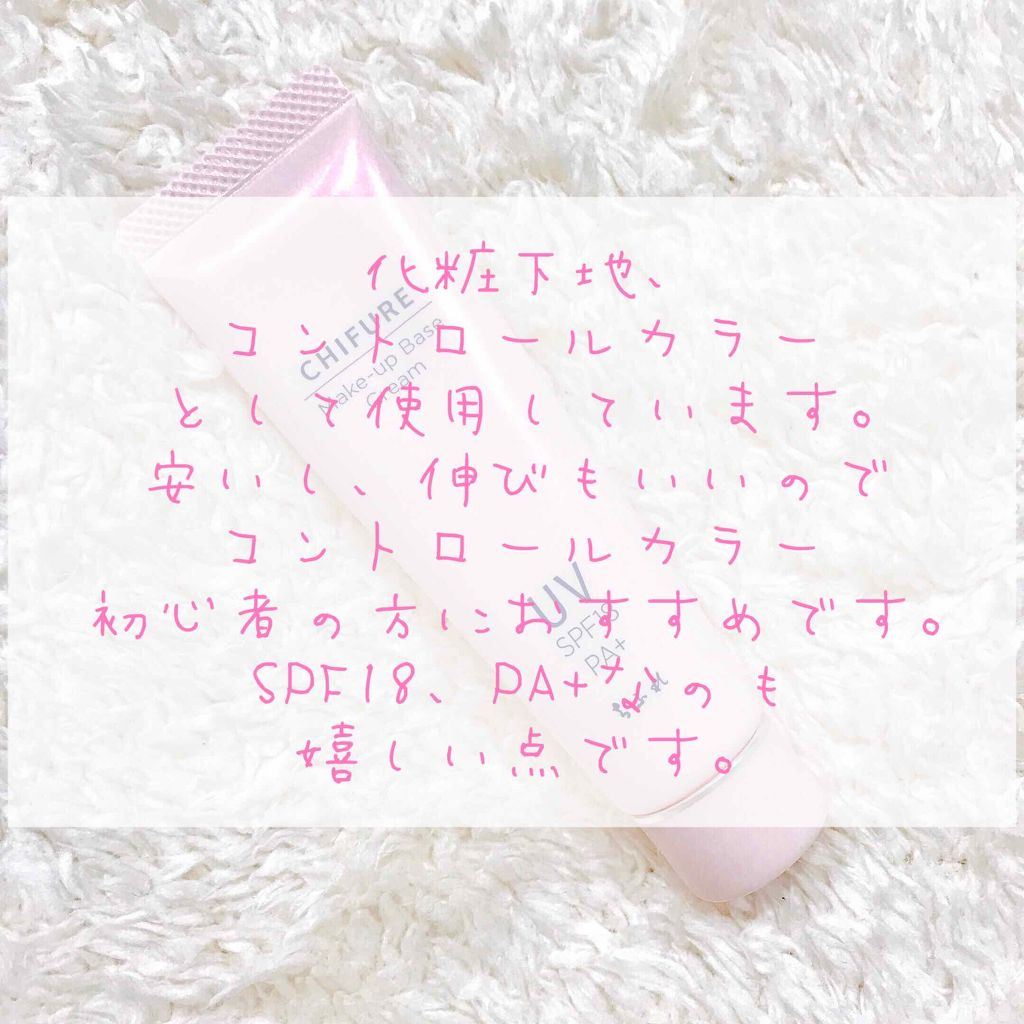 化粧下地、
コントロールカラー
として使用しています。
安いし、伸びもいいので
コントロールカラー
初心者の方におすすめです。
SPF18、PA+なのも
嬉しい点です。
CHIFURE
Make-up Base
Cream
UV
SPF18
PA+
ちふれ